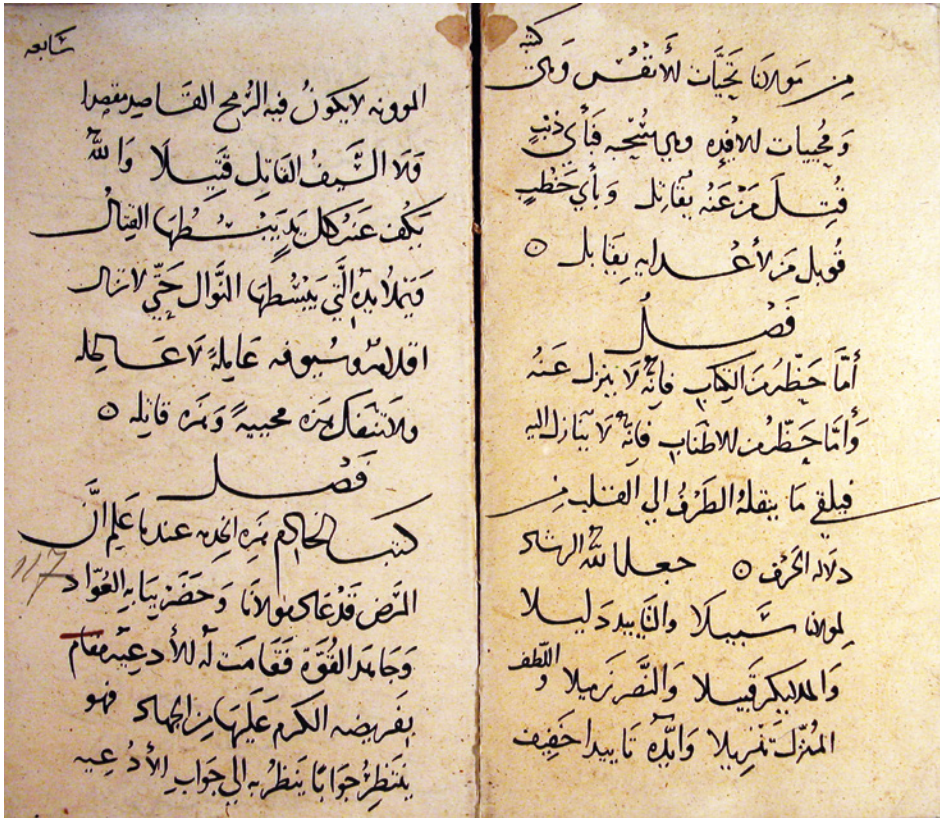 من مولانا تحيات للأنفس وبين كتبه
ومحييات للافئده وبين سحبه فبأي ذنب
قتل من عنه يقاتل وبأي خطب
قوبل من لأعدايه يقابل ○
فصل
أما حظر من الكتاب فانه لا ينزل عنه
وأما حظر من للاطناب فانه لا ينازل اليه
فيلقي ما ينقله الطرف الي القلب من
دلاله الحرف ○ جعل الله الرشاد
لمولانا سبيلا والتاييد دليلا
والملايكه قبيلا والنصر نزيلا واللطف
المنزل تنزيلا وايده تاييدا خفيف
المؤونه لا يكون فيه الرمح القاصد مقصدا
ولا السيف القاتل قتيلا والله
يكف عنه كل يد يبسطها القتال
ويملا يده التي يبسطها النوال حتي لا تزال
اقلامه وسيوفه عاملة لا عاطله
ولا تنفك مره محييه ومره قاتله ○
فصل
كتب الخادم هذه الخدمه عندما علم أن
المرض قد عاد مولانا وحضر ببابه العواد
وجامد القوة فقامت له للأدعيه مقام
بفريضه الكرم عليها من الجهاد فهو
ينتظر جوابا ينظر به الي جواب الأدعيه
شابعه
117